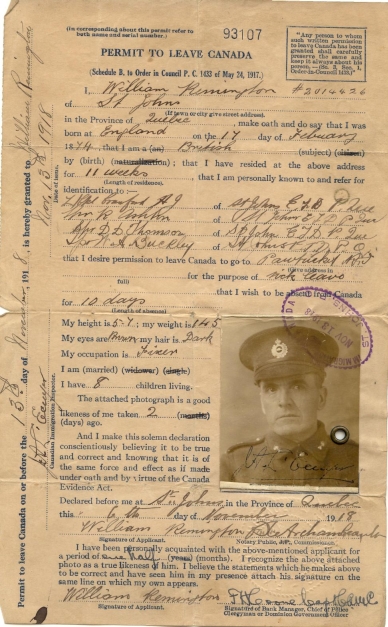 (In corresponding about this permit refer to
both name and serial number.)
93107
"Any person to whom
such written permission
to leave Canada has been
granted shall carefully
preserve the same and
keep it always about his
person.
PERMIT TO LEAVE CANADA
(Schedule B. to Order in Council P.C. 1433 of May 24, 1917.)
I, William Remington #2014426
of St Johns
(If town or city give street address)
in the Province of Quebic, make oath and do say that I was
born at England on the 17 day of Febuary
1874, that I am a (an) British (subject) (citizen)
by (birth) (naturalization); that I have resided at the above address
for 11 weeks that I am personally known to and refer for
(Length of residence).
identification to:—
of St John E T D P. Que
of St John E T D P. Que
Spr D D Thomson of St John E T D P. Que
Buckley of
that I desire permission to leave Canada to go to Pawtucket R.I
(Give address in
full) for the purpose of leave
that I wish to be absent from Canada
for 10 days
(Length of absence)
My height is 5-7; my weight is 145
My eyes are Brown my hair is Dark
My occupation is Fixer
I am (married) (widower) (single)
I have 8 children living.
The attached photograph is a good
likeness of me taken 2 (months)
(days) ago.
And I make this solemn declaration
conscientiously believing it to be
true and correct and knowing that is of
the same force and effect as if made
under oath and by virtue of the Canada
Evidence Act.
Declared before me at St. Johns in the Province of Quebec
this 6th day of November 1918
William Remington
Signature of Applicant. Notary Public, J.P., Commissioner.
I have been personally acquainted with the above-mentioned applicant for
a period of one half (years) (months). I recognize the above attached
photo as a true likeness of him. I believe the statements which he makes above
to be correct and have seen him in my presence attach his signature on the
same line on which my own appears.
William Remington
Signature of Applicant. Signature of Bank Manager, Chief of Police
Clergyman or Dominion Government Officer
Permit to leave Canada on or before the 13th day of November, 1918 is hereby granted to William Remington
Nov. 3rd 1918
Canadian Immigration Inspector.